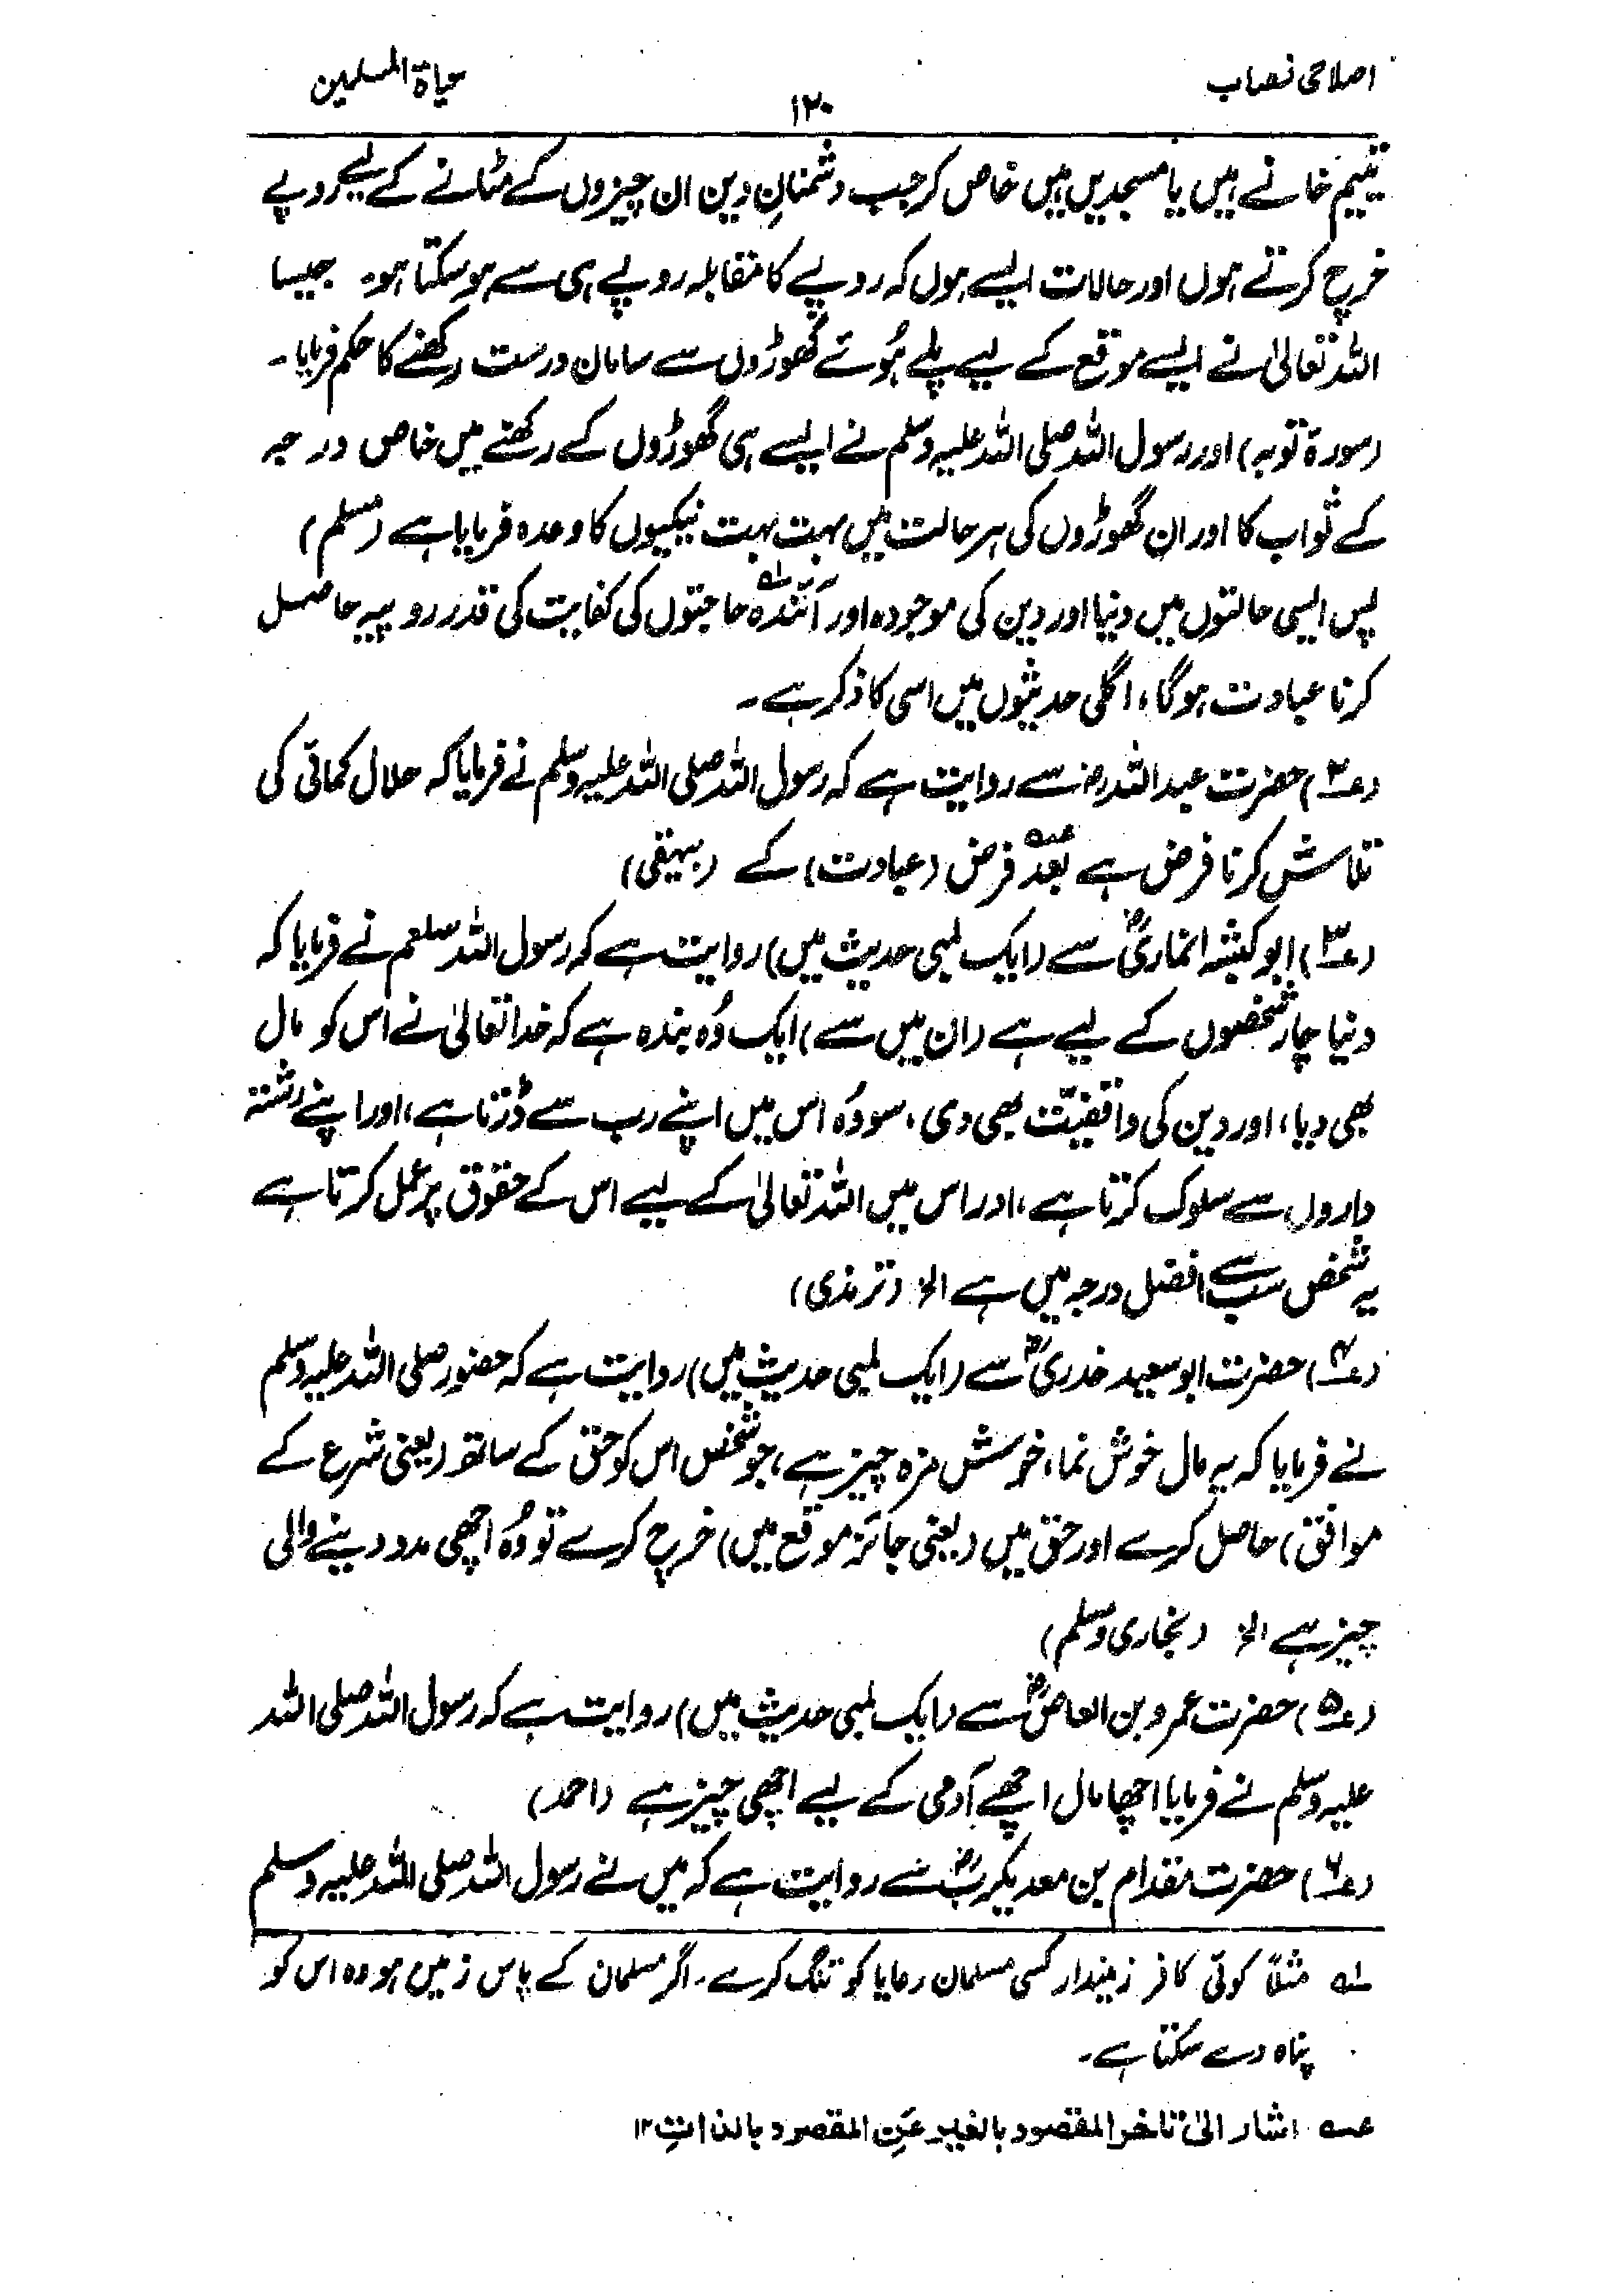 اصلاحی نصاب
۱۲۰
حیاۃ المسلمین
یتیم خانے ہیں یا مسجدیں ہیں خاص کر جب دشمنانِ دین ان چیزوں کے مٹانے کے لیے روپے
خرچ کرتے ہوں اور حالات ایسے ہوں کہ روپے کا مقابلہ روپے ہی سے ہو سکتا ہو۔ جیسا
اللہ تعالیٰ نے ایسے موقع کے لیے پلے ہُوئے گھوڑوں سے سامان درست رکھنے کا حکم فرمایا۔
(سورۃ توبہ) اور رسول اللہ صلی اللہ علیہ وسلم نے ایسے ہی گھوڑوں کے رکھنے میں خاص درجہ
کے ثواب کا اور ان گھوڑوں کی ہر حالت میں بہت بہت نیکیوں کا وعدہ فرمایا ہے (مسلم)
پس ایسی حالتوں میں دنیا اور دین کی موجودہ اور آئندہ لہ حاجتوں کی کفایت کی قدر روپیہ حاصل
کرنا عبادت ہوگا، اگلی حدیثوں میں اسی کا ذکر ہے۔
(ع۲) حضرت عبداللہ رض سے روایت ہے کہ رسول اللہ صلی اللہ علیہ وسلم نے فرمایا کہ حلال کمائی کی
تلاش کرنا فرض ہے بعد عہ فرض (عبادت) کے (بیہقی)
(ع۳) ابو کبشہ انماریؓ سے (ایک لمبی حدیث میں) روایت ہے کہ رسول اللہ صلعم نے فرمایا کہ
دنیا چار شخصوں کے لیے ہے (ان میں سے) ایک وُہ بندہ ہے کہ خدا تعالیٰ نے اس کو مال
بھی دیا، اور دین کی واقفیّت بھی دی، سو وُہ اس میں اپنے رب سے ڈرتا ہے، اور اپنے رشتہ
داروں سے سلوک کرتا ہے، اور اس میں اللہ تعالیٰ کے لیے اس کے حقوق پر عمل کرتا ہے
یہ شخص سب سے افضل درجہ میں ہے الخ (ترمذی)
(ع۴) حضرت ابو سعید خدریؓ سے (ایک لمبی حدیث میں) روایت ہے کہ حضور صلی اللہ علیہ وسلم
نے فرمایا کہ یہ مال خوش نما، خوش مزہ چیز ہے، جو شخص اس کو حق کے ساتھ (یعنی شرع کے
موافق) حاصل کرے اور حق میں (یعنی جائز موقع میں) خرچ کرے تو وُہ اچھی مدد دینے والی
چیز ہے الخ (بخاری و مسلم)
(ع۵) حضرت عمرو بن العاصؓ سے (ایک لمبی حدیث میں) روایت ہے کہ رسول اللہ صلی اللہ
علیہ وسلم نے فرمایا اچھا مال اچھے آدمی کے لیے اچھی چیز ہے (احمد)
(ع۶) حضرت مقدام بن معدیکربؓ سے روایت ہے کہ میں نے رسول اللہ صلی اللہ علیہ وسلم
لہ مثلاً کوئی کافر زمیندار کسی مسلمان رعایا کو تنگ کرے۔ اگر مسلمان کے پاس زمین ہو وہ اس کو
پناہ دے سکتا ہے۔
عہ اشار الیٰ تاخر المقصود بالغیر عَنِ المقصود بالذاتِ ۱۲